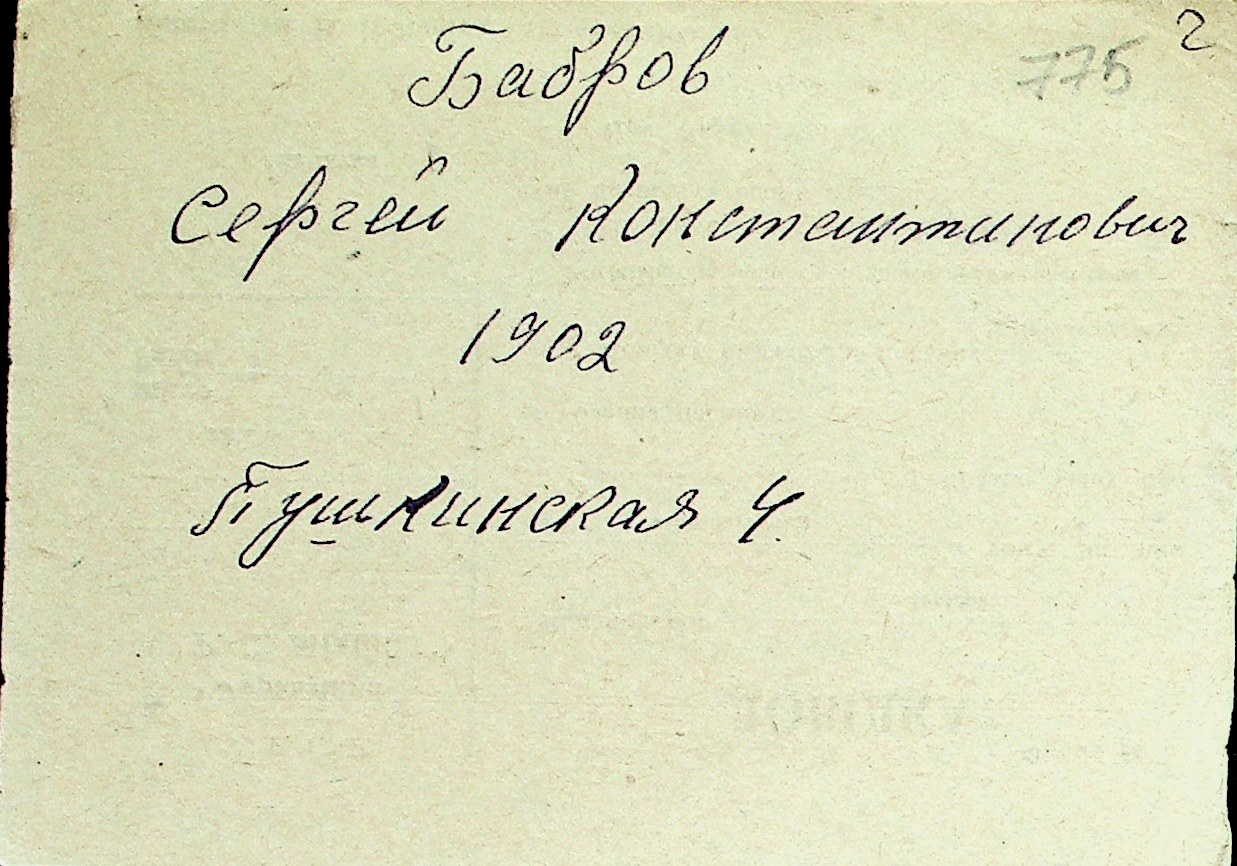 2
775
Бабров
Сергей Константинович
1902
Пушкинская 4.